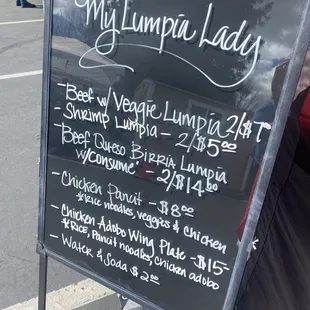 My Lumpia Lady
- Beef w/ Veggie Lumpia 2/$7
- Shrimp Lumpia - 2/$5.00
- Beef Queso Birria Lumpia
w/Consume' - 2/$14.00
- Chicken Pancit - $8.00
*Rice noodles, veggies & chicken
- Chicken Adobo Wing Plate - $15-
*Rice, Pancit noodles, chicken adobo
- Water & Soda $2.00